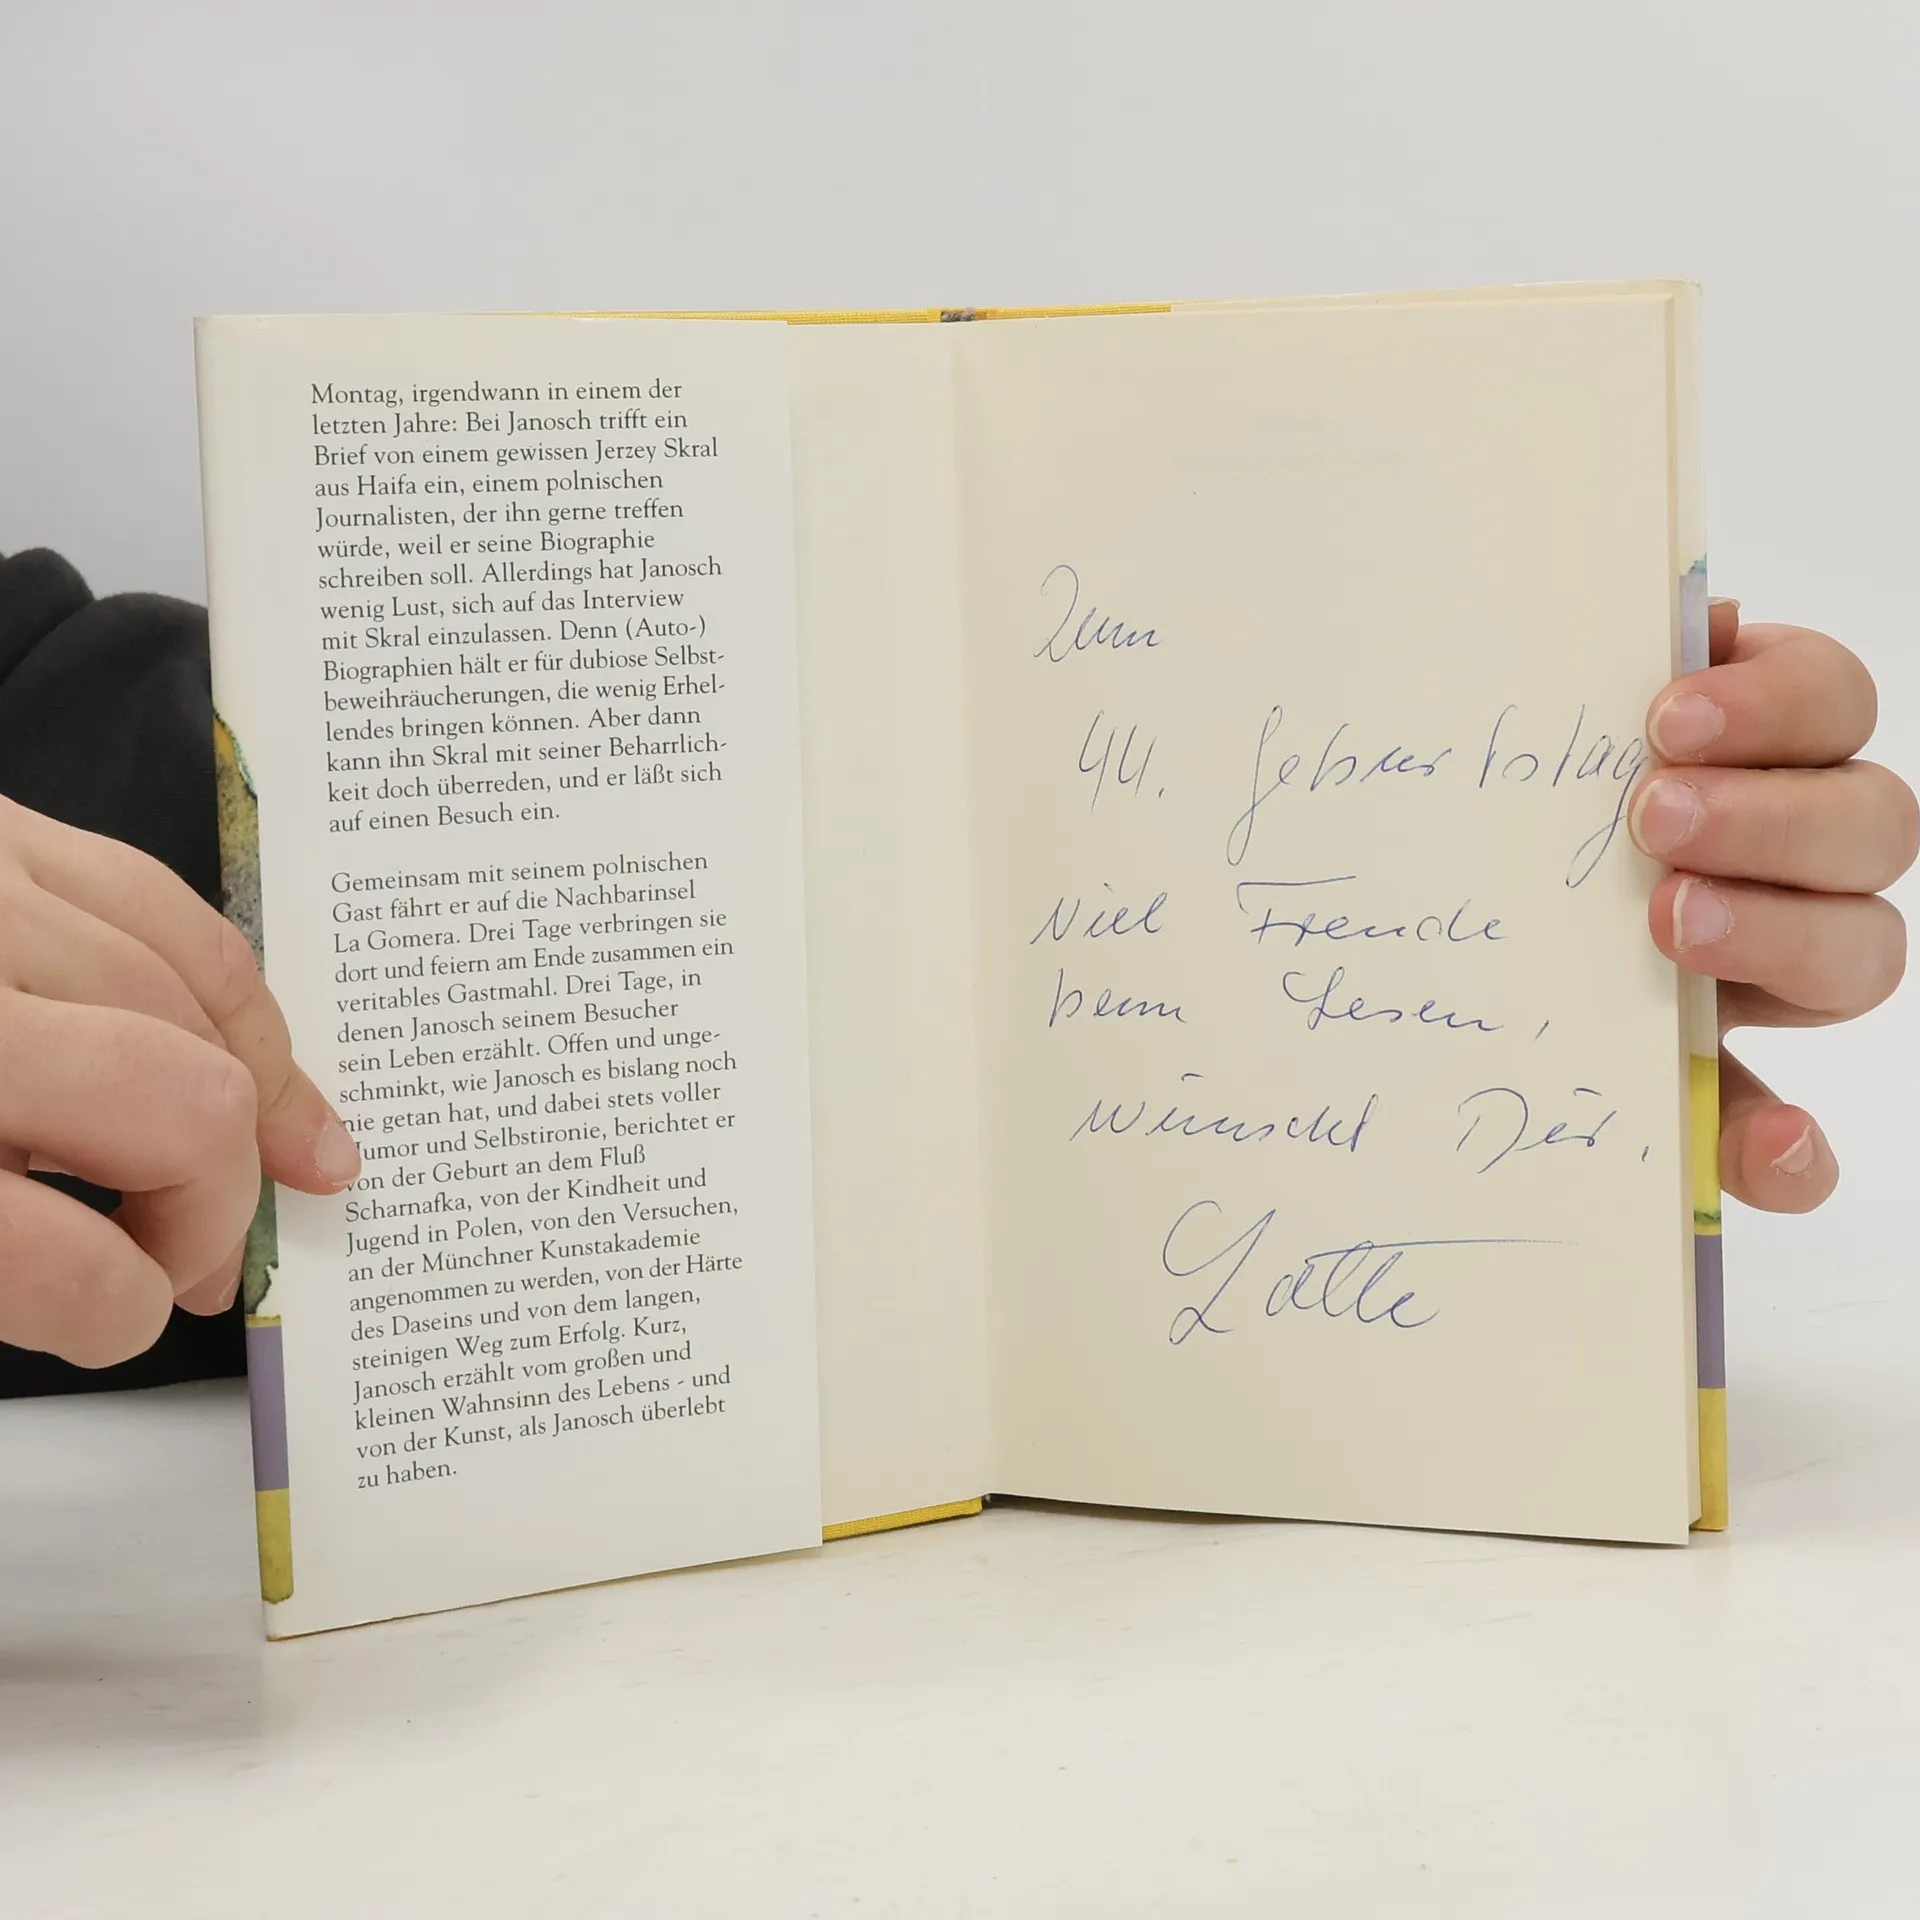 Montag, irgendwann in einem der
letzten Jahre: Bei Janosch trifft ein
Brief von einem gewissen Jerzey Skral
aus Haifa ein, einem polnischen
Journalisten, der ihn gerne treffen
würde, weil er seine Biographie
schreiben soll. Allerdings hat Janosch
wenig Lust, sich auf das Interview
mit Skral einzulassen. Denn (Auto-)
Biographien hält er für dubiose Selbst-
beweihräucherungen, die wenig Erhel-
lendes bringen können. Aber dann
kann ihn Skral mit seiner Beharrlich-
keit doch überreden, und er läßt sich
auf einen Besuch ein.
Gemeinsam mit seinem polnischen
Gast fährt er auf die Nachbarinsel
La Gomera. Drei Tage verbringen sie
dort und feiern am Ende zusammen ein
veritables Gastmahl. Drei Tage, in
denen Janosch seinem Besucher
sein Leben erzählt. Offen und unge-
schminkt, wie Janosch es bislang noch
nie getan hat, und dabei stets voller
Humor und Selbstironie, berichtet er
von der Geburt an dem Fluß
Scharnafka, von der Kindheit und
Jugend in Polen, von den Versuchen,
an der Münchner Kunstakademie
angenommen zu werden, von der Härte
des Daseins und von dem langen,
steinigen Weg zum Erfolg. Kurz,
Janosch erzählt vom großen und
kleinen Wahnsinn des Lebens - und
von der Kunst, als Janosch überlebt
zu haben.
Zum
44. Geburtstag
Viel Freude
beim Lesen,
wünscht Dir,